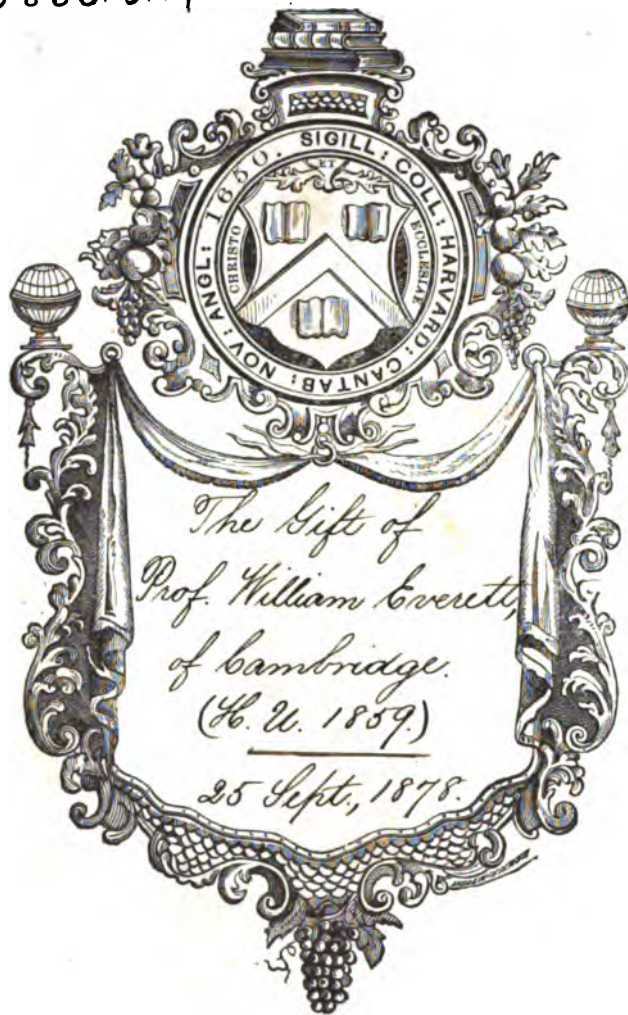 SIGILL: COLL: HARVARD: CANTAB: NOV: ANGL: 1650.
CHRISTO
ET
ECCLESIAE
The Gift of
Prof. William Everett,
of Cambridge.
(H. U. 1859.)
25 Sept., 1878.